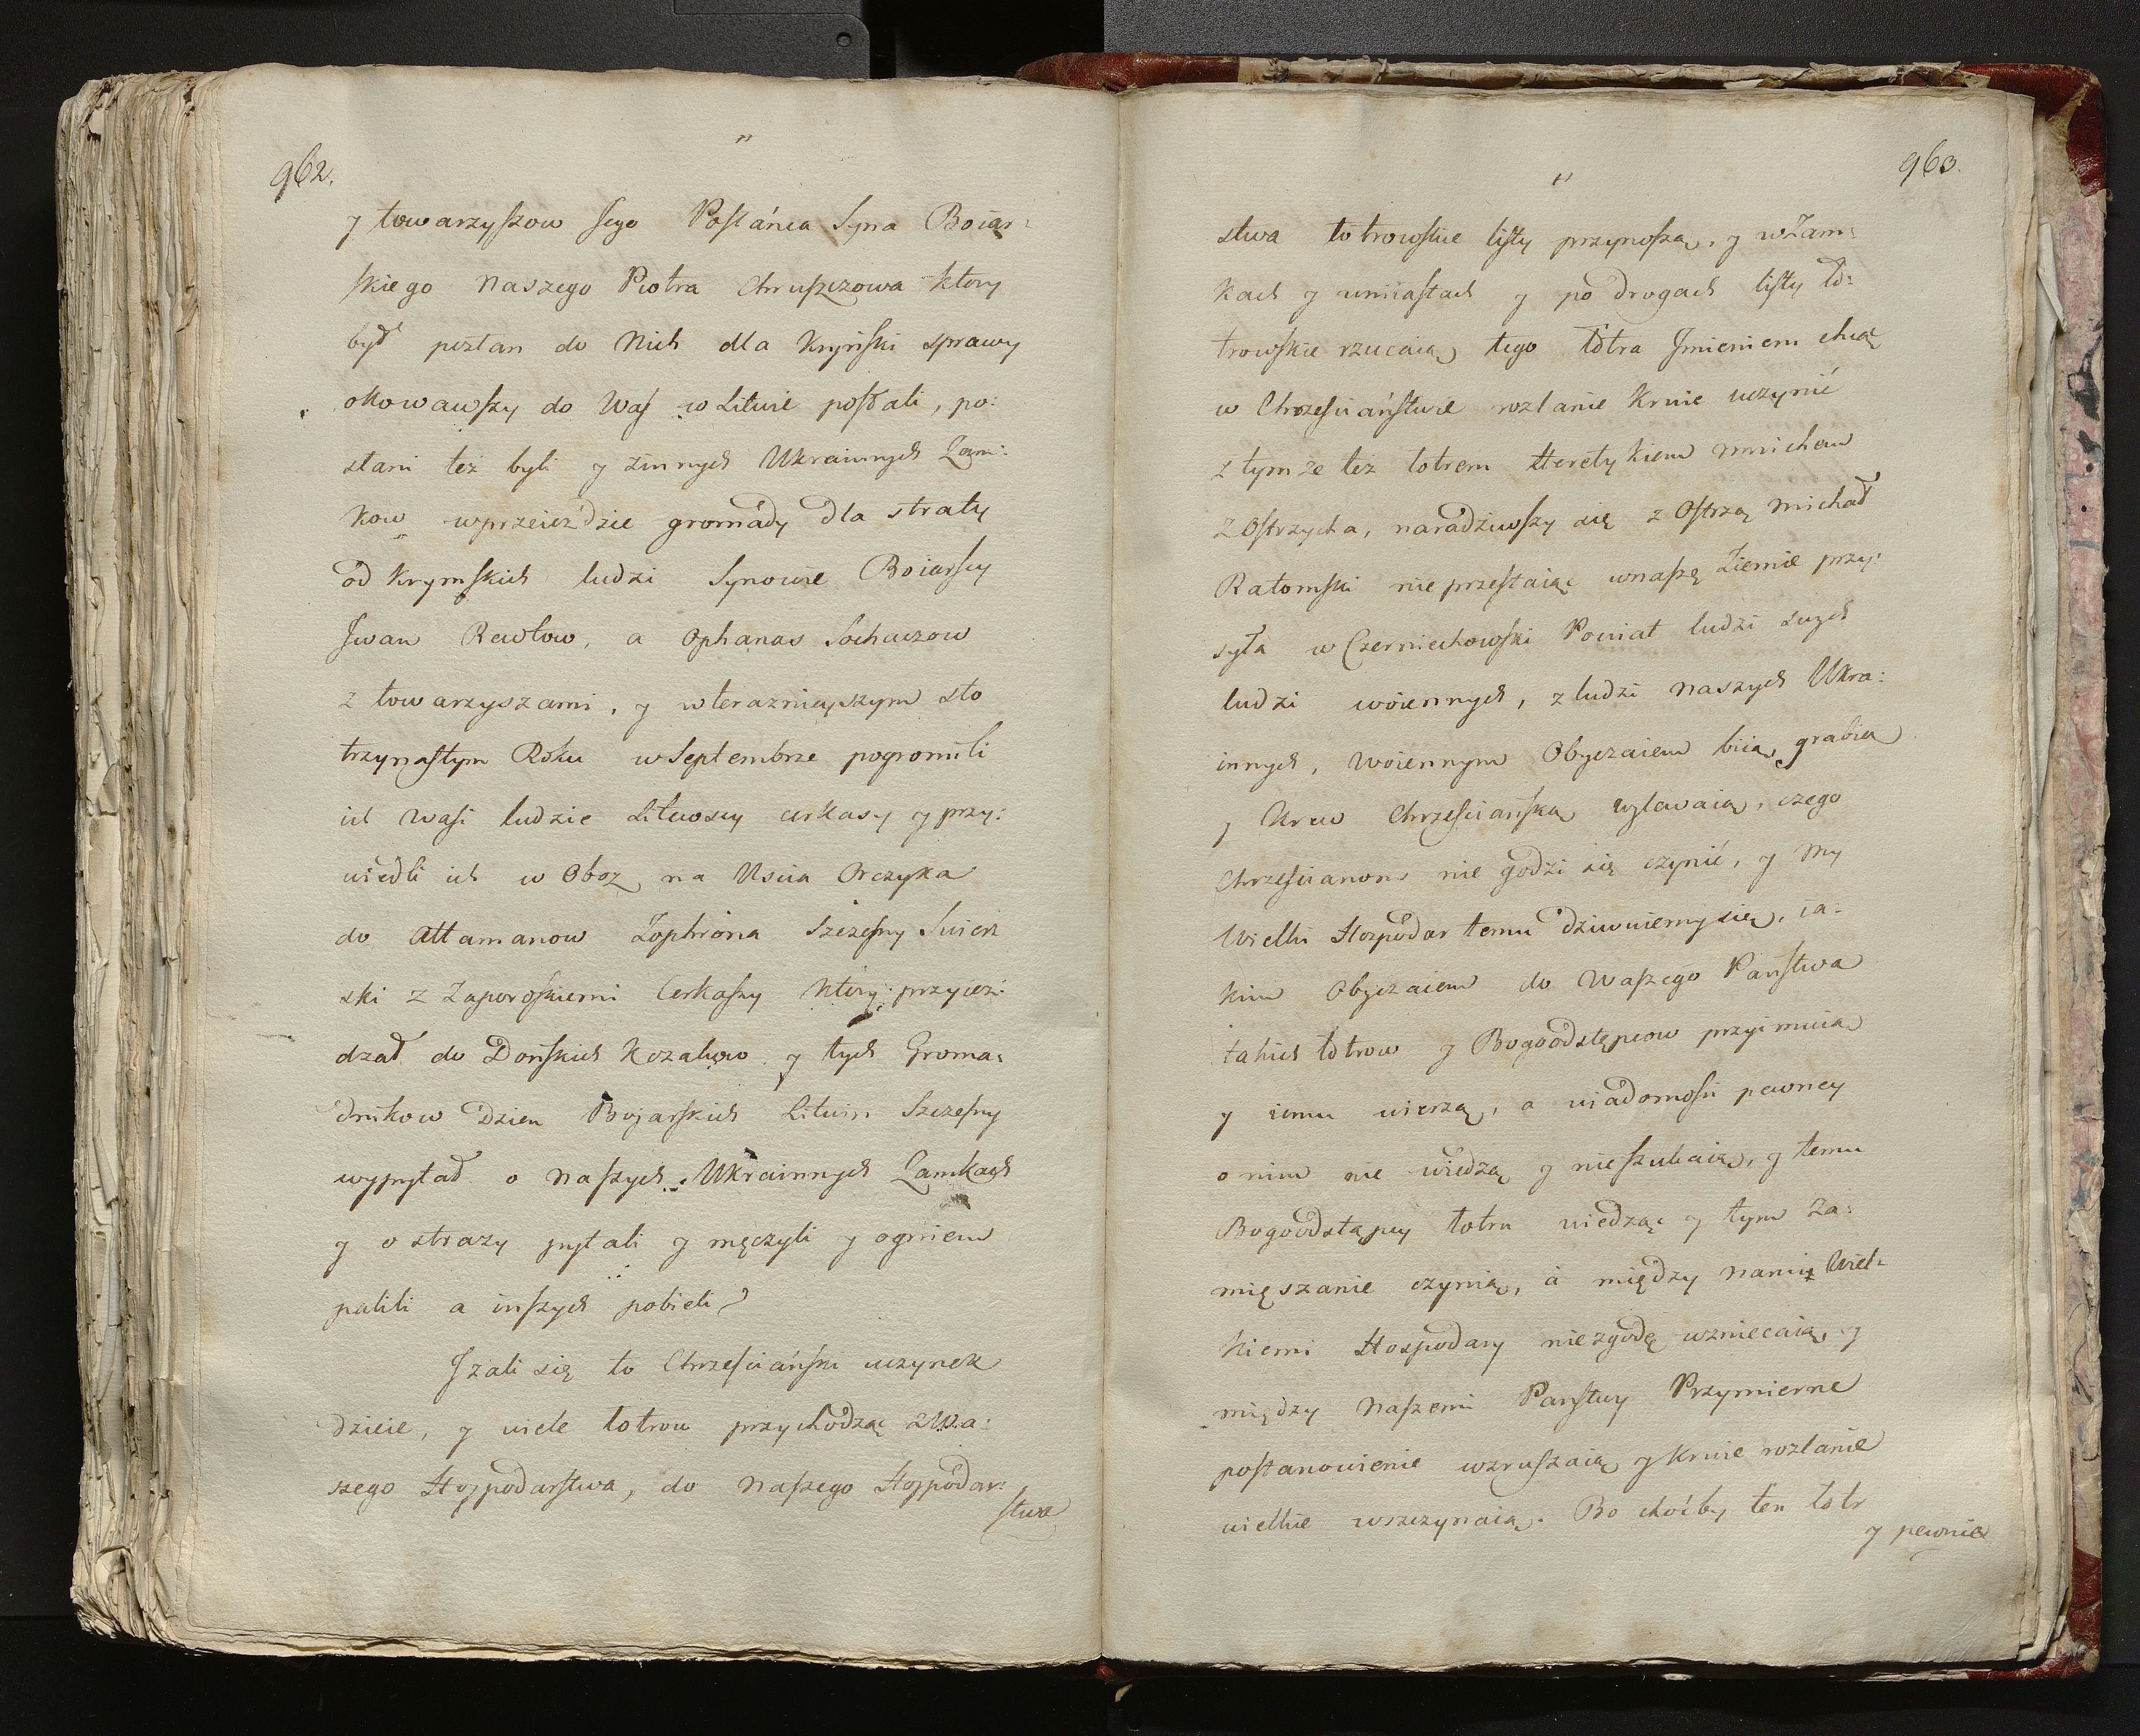 962.
y towarzyszow Jego Posłańca Syna Boiar:
skiego Naszego Piotra Chruszczowa ktory
był posłan do Nich dla Krymski sprawy
okowawszy do Was w Litwie posłali, po:
słani też byli y zinnych Ukrainnych Zam:
kow wprzeieździe gromády dla straty
od Krymskich ludzi Synowie Boiarscy
Iwan Rewtow, a Ophanas Sochaczow
z towarzyszami, y wteraznieyszym sto
trzynastym Roku wSeptembrze pogromili
ich Wasi ludzie Litewscy Cerkasy y przy:
wiedli ich w Oboz na Uscia Orczyka
do Attamanow Zophrona Szczesny Swier
ski z Zaporoskiemi Cerkasy ktory przyiezi:
dzał do Dońskich Kozakow y tych Groma:
dnikow Dzieu Bojarskich Litwin Szczesny
wypytał o Naszych Ukrainnych Zamkach
y o strazy pytali y męczyli y ogniem
palili a inszych pobieli
Izali się to Chrześciański uczynek
dzieie, y wiele łotrow przychodząc zWa:
szego Hospodarstwa, do Naszego Hospodar:
stwa
963.
stwa łotrowskie listy przynoszą, y wZam:
kach y wmiastach y po drogach listy ło:
trowskie rzucaią, tego łotra Imieniem chcą
w Chrześciaństwie rozlanie Krwie uczynić
z tymże też łotrem Heretykiem Mnichem
zOstrzycha, naradziwszy się z Ostrzą Michał
Ratomski nie przestaiąc wnaszę Ziemie przy:
syła w Czerniechowski Powiat ludzi swych
ludzi woiennych, z ludzi Naszych Ukra:
innych, Woiennym Obyczaiem biią, grabią
y Krew Chrześciańską wylewaią, czego
Chrześcianom nie godzi się czynić, y My
Wielki Hospodar temu dziwuiemy się, ia:
kim Obyczaiem do Waszego Państwa
takich łotrow y Bogoodstępcow przyimuią
y iemu wierzą, a wiadomości pewney
o nim nie wiedzą y nieszukaią, y temu
Bogoodstąpcy łotru wiedząc y tym Za:
mięszanie czynią, á między Nami Wiel:
kiemi Hospodary niezgodę wzniecaią, y
między Naszemi Panstwy Przymierne
postanowienie wzruszaią y Krwie rozlanie
wielkie wszczynaią. Bo choćby ten łotr
y pewnie